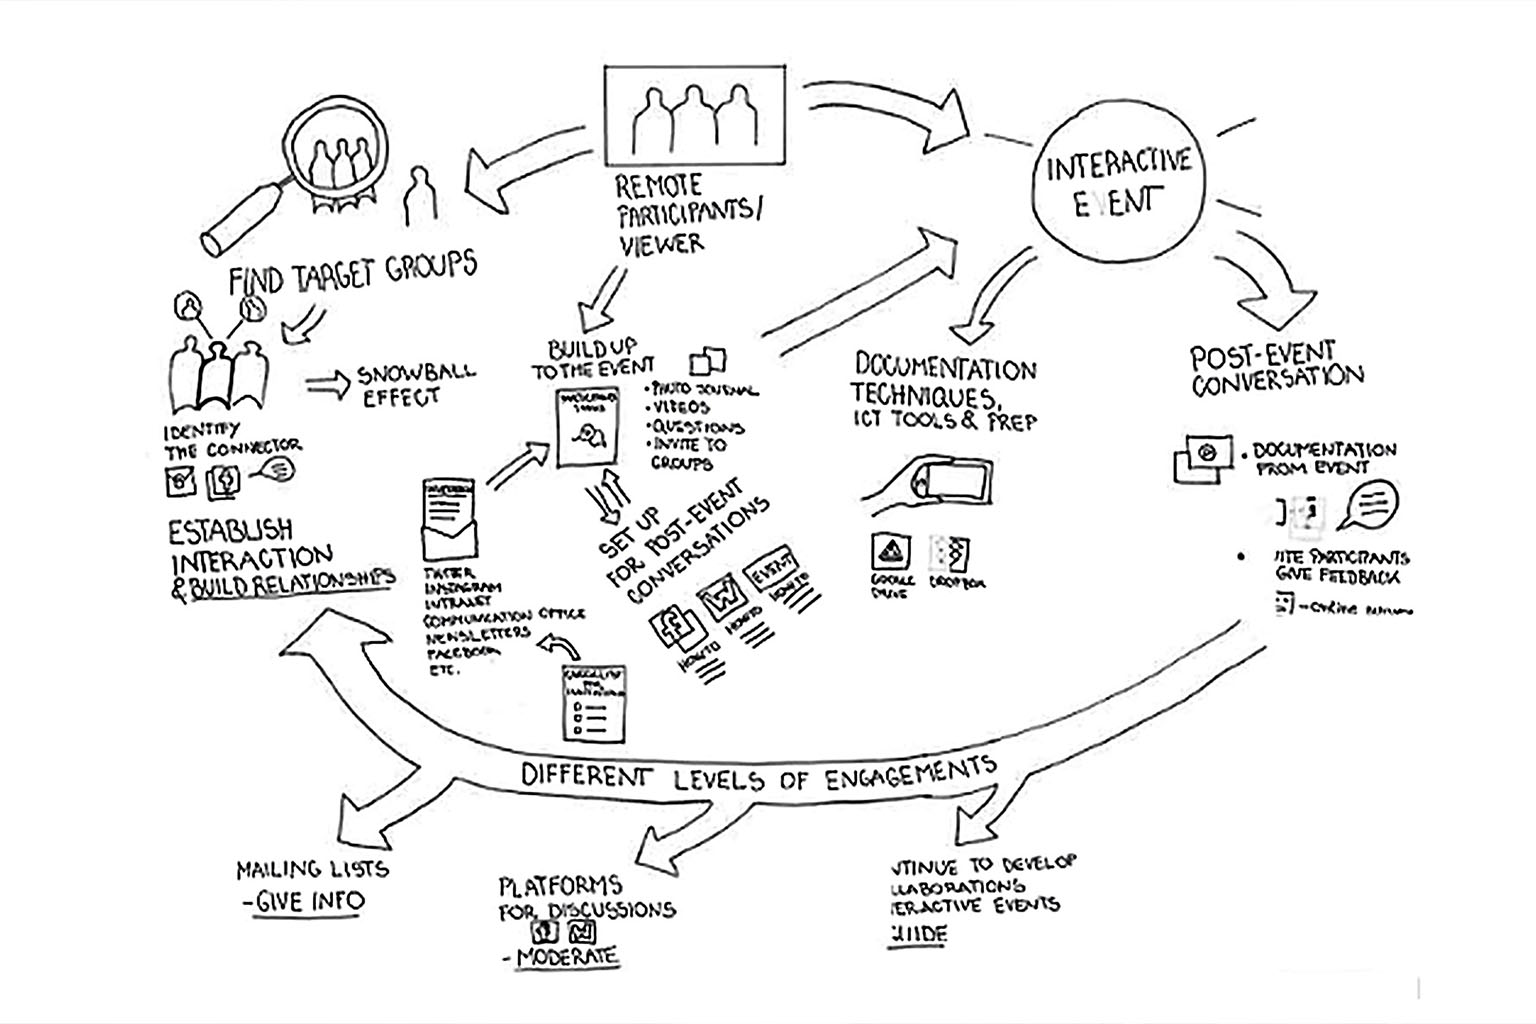 REMOTE
PARTICIPANTS/
VIEWER
INTERACTIVE
EVENT
FIND TARGET GROUPS
SNOWBALL
EFFECT
IDENTIFY
THE CONNECTOR
ESTABLISH
INTERACTION
& BUILD RELATIONSHIPS
BUILD UP
TO THE EVENT
• PHOTO JOURNAL
• VIDEOS
• QUESTIONS
• INVITE TO
GROUPS
SET UP
FOR POST-EVENT
CONVERSATIONS
HOW TO
HOW TO
EVENT
HOW TO
TWITTER
INSTAGRAM
INTRANET
COMMUNICATION OFFICE
NEWSLETTERS
FACEBOOK
ETC.
CHECKLIST
FOR
DOCUMENTATION
TECHNIQUES,
ICT TOOLS & PREP
GOOGLE
DRIVE
DROPBOX
POST-EVENT
CONVERSATION
• DOCUMENTATION
FROM EVENT
• ITE PARTICIPANTS
GIVE FEEDBACK
- ONLINE
DIFFERENT LEVELS OF ENGAGEMENTS
MAILING LISTS
- GIVE INFO
PLATFORMS
FOR DISCUSSIONS
- MODERATE
NTINUE TO DEVELOP
LLABORATIONS
ERACTIVE EVENTS